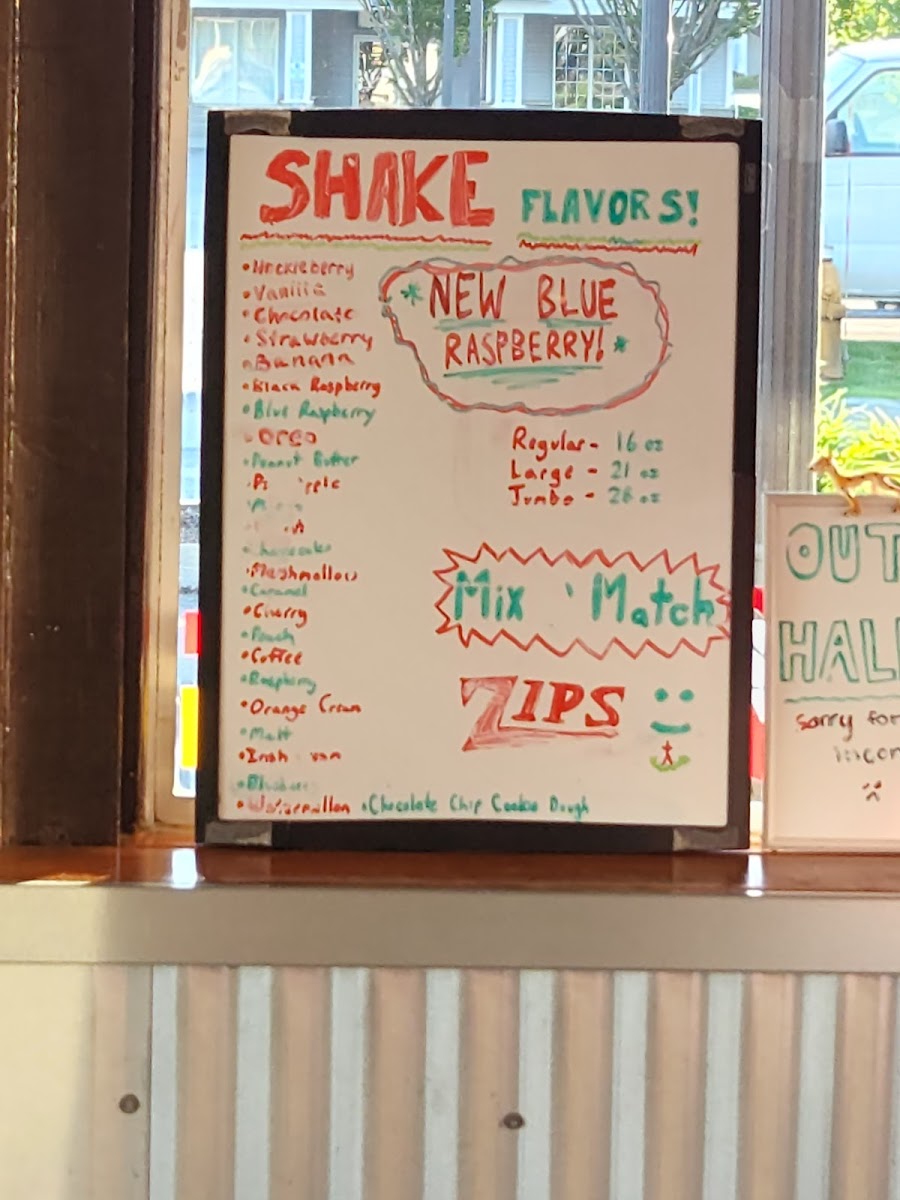 SHAKE FLAVORS!
• Huckleberry
• Vanilla
• Chocolate
• Strawberry
• Banana
• Black Raspberry
• Blue Raspberry
• Oreo
• Peanut Butter
• Cheesecake
• Mashmallow
• Caramel
• Cherry
• Peach
• Coffee
• Raspberry
• Orange Cream
• Malt
• Irish
• Watermellon • Chocolate Chip Cookie Dough
* NEW BLUE
RASPBERRY! *
Regular - 16 oz
Large - 21 oz
Jumbo - 28 oz
Mix ' Match
ZIPS
OUT
HAL
sorry for
incon